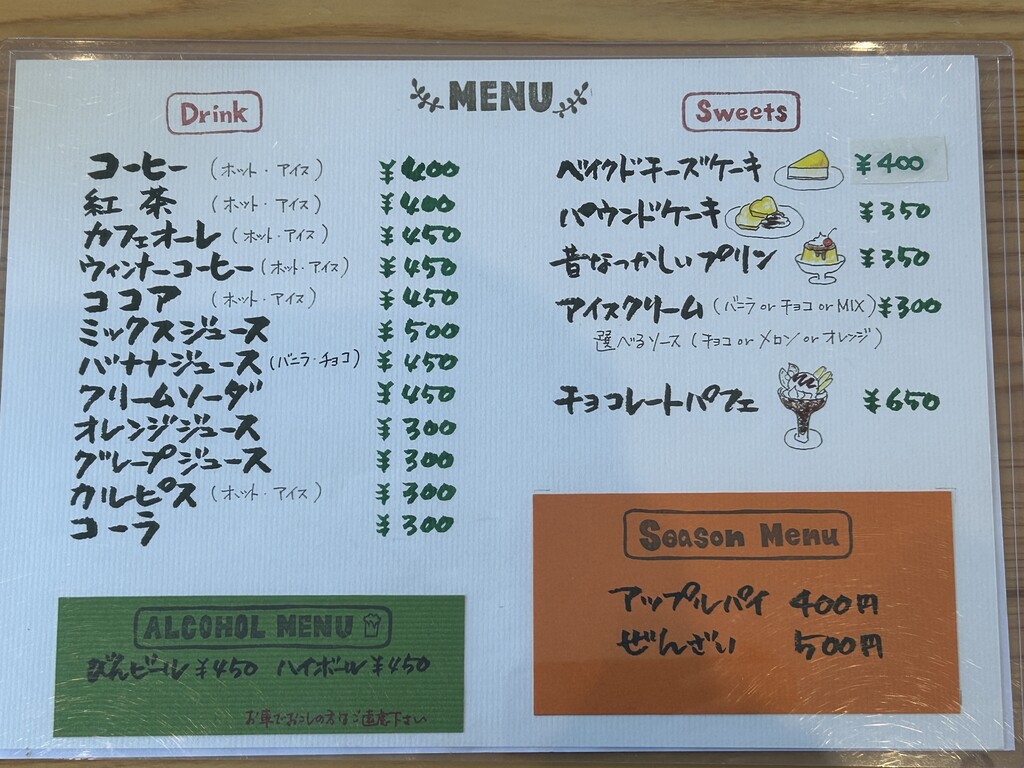 MENU
Drink
コーヒー (ホット・アイス) ¥400
紅茶 (ホット・アイス) ¥400
カフェオーレ (ホット・アイス) ¥450
ウィンナーコーヒー (ホット・アイス) ¥450
ココア (ホット・アイス) ¥450
ミックスジュース ¥500
バナナジュース (バニラ・チョコ) ¥450
クリームソーダ ¥450
オレンジジュース ¥300
グレープジュース ¥300
カルピス (ホット・アイス) ¥300
コーラ ¥300
ALCOHOL MENU
びんビール ¥450 ハイボール ¥450
お車でお越しの方はご遠慮下さい
Sweets
ベイクドチーズケーキ ¥400
パウンドケーキ ¥350
昔なつかしいプリン ¥350
アイスクリーム (バニラ or チョコ or MIX) ¥300
選べるソース (チョコ or メロン or オレンジ)
チョコレートパフェ ¥650
Season Menu
アップルパイ 400円
ぜんざい 500円